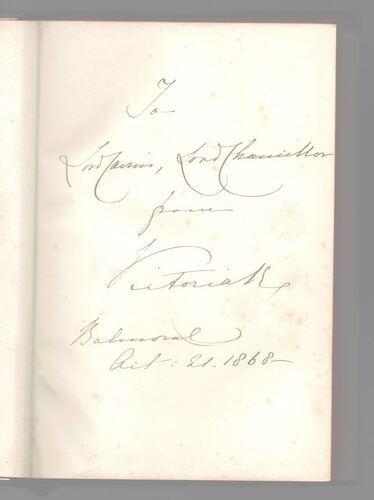 To
Lord Cairns, Lord Chancellor
from
Victoria R
Balmoral
Oct: 21. 1868